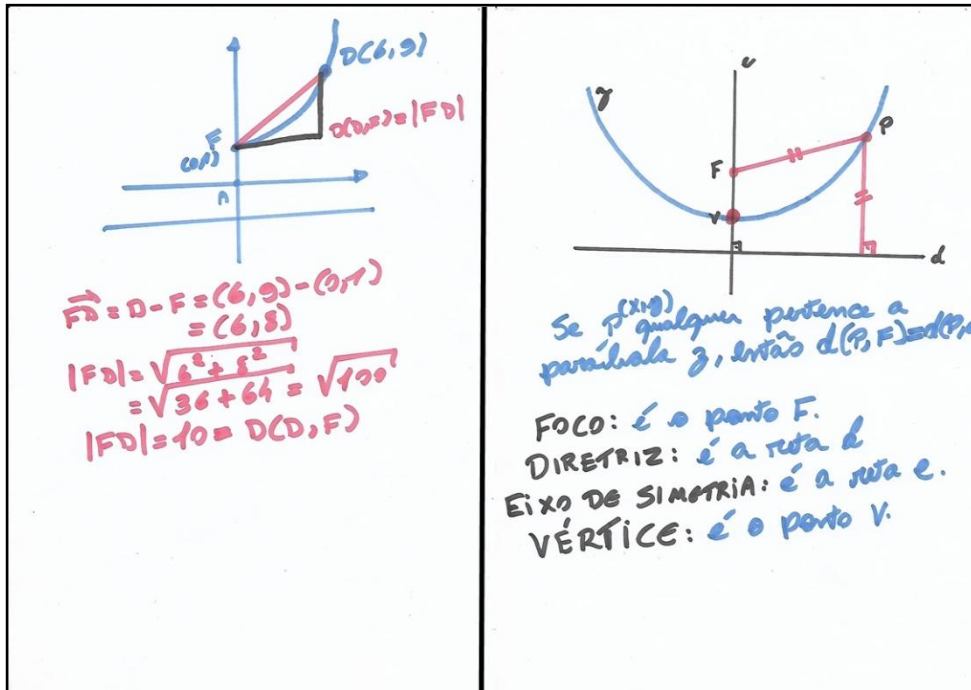 D(6,9)
D(D,F)=|FD|
F
(0,1)
A
FD = D - F = (6,9) - (0,1)
= (6,8)
|FD| = √6² + 8²
= √36 + 64 = √100
|FD| = 10 = D(D,F)
e
γ
P
F
V
d
Se P(x,y) qualquer pertence a
parábola γ, então d(P,F)=d(P,
FOCO: é o ponto F.
DIRETRIZ: é a reta d
EIXO DE SIMETRIA: é a reta e.
VÉRTICE: é o ponto V.